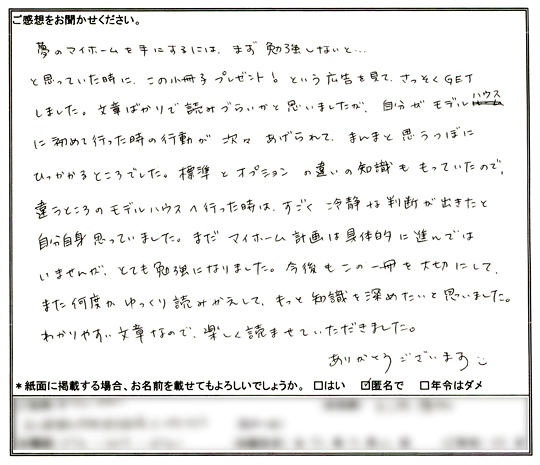 ご感想をお聞かせください。
夢のマイホームを手にするには、まず勉強しないと…
と思っていた時に、この小冊子プレゼント！という広告を見て、さっそくGET
しました。文章ばかりで読みづらいかと思いましたが、自分がモデルハウス
に初めて行った時の行動が次々あげられて、まんまと思うつぼに
ひっかかるところでした。標準とオプションの違いの知識ももっていたので、
違うところのモデルハウスへ行った時は、すごく冷静な判断が出きたと
自分自身思っていました。まだマイホーム計画は具体的に進んでは
いませんが、とても勉強になりました。今後もこの一冊を大切にして、
また何度かゆっくり読みかえして、もっと知識を深めたいと思いました。
わかりやすい文章なので、楽しく読ませていただきました。
ありがとうございます
＊紙面に掲載する場合、お名前を載せてもよろしいでしょうか。 □はい ☑匿名で □年令はダメ